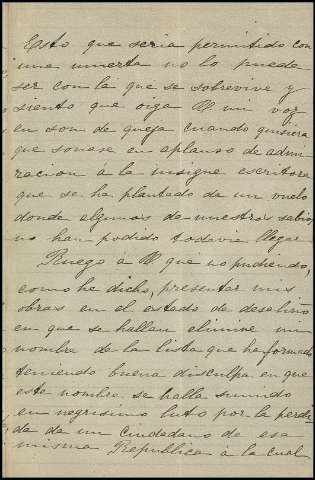 Esto que seria permitido con
una muerta no lo puede
ser con la que se sobrevive y
siento que oiga V. mi voz
en son de queja cuando quisiera
que sonase en aplauso de admi-
racion á la insigne escritora
que se ha plantado de un vuelo
donde algunos de nuestros sabios
no han podido todavia llegar.
Ruego á V. que no pudiendo,
como he dicho, presentar mis
obras en el estado de desaliño
en que se hallan elimine mi
nombre de la lista que ha formado
teniendo buena disculpa en que
este nombre se halla sumido
en negrisimo luto por la perdi-
da de un ciudadano de esa
misma Republica á la cual